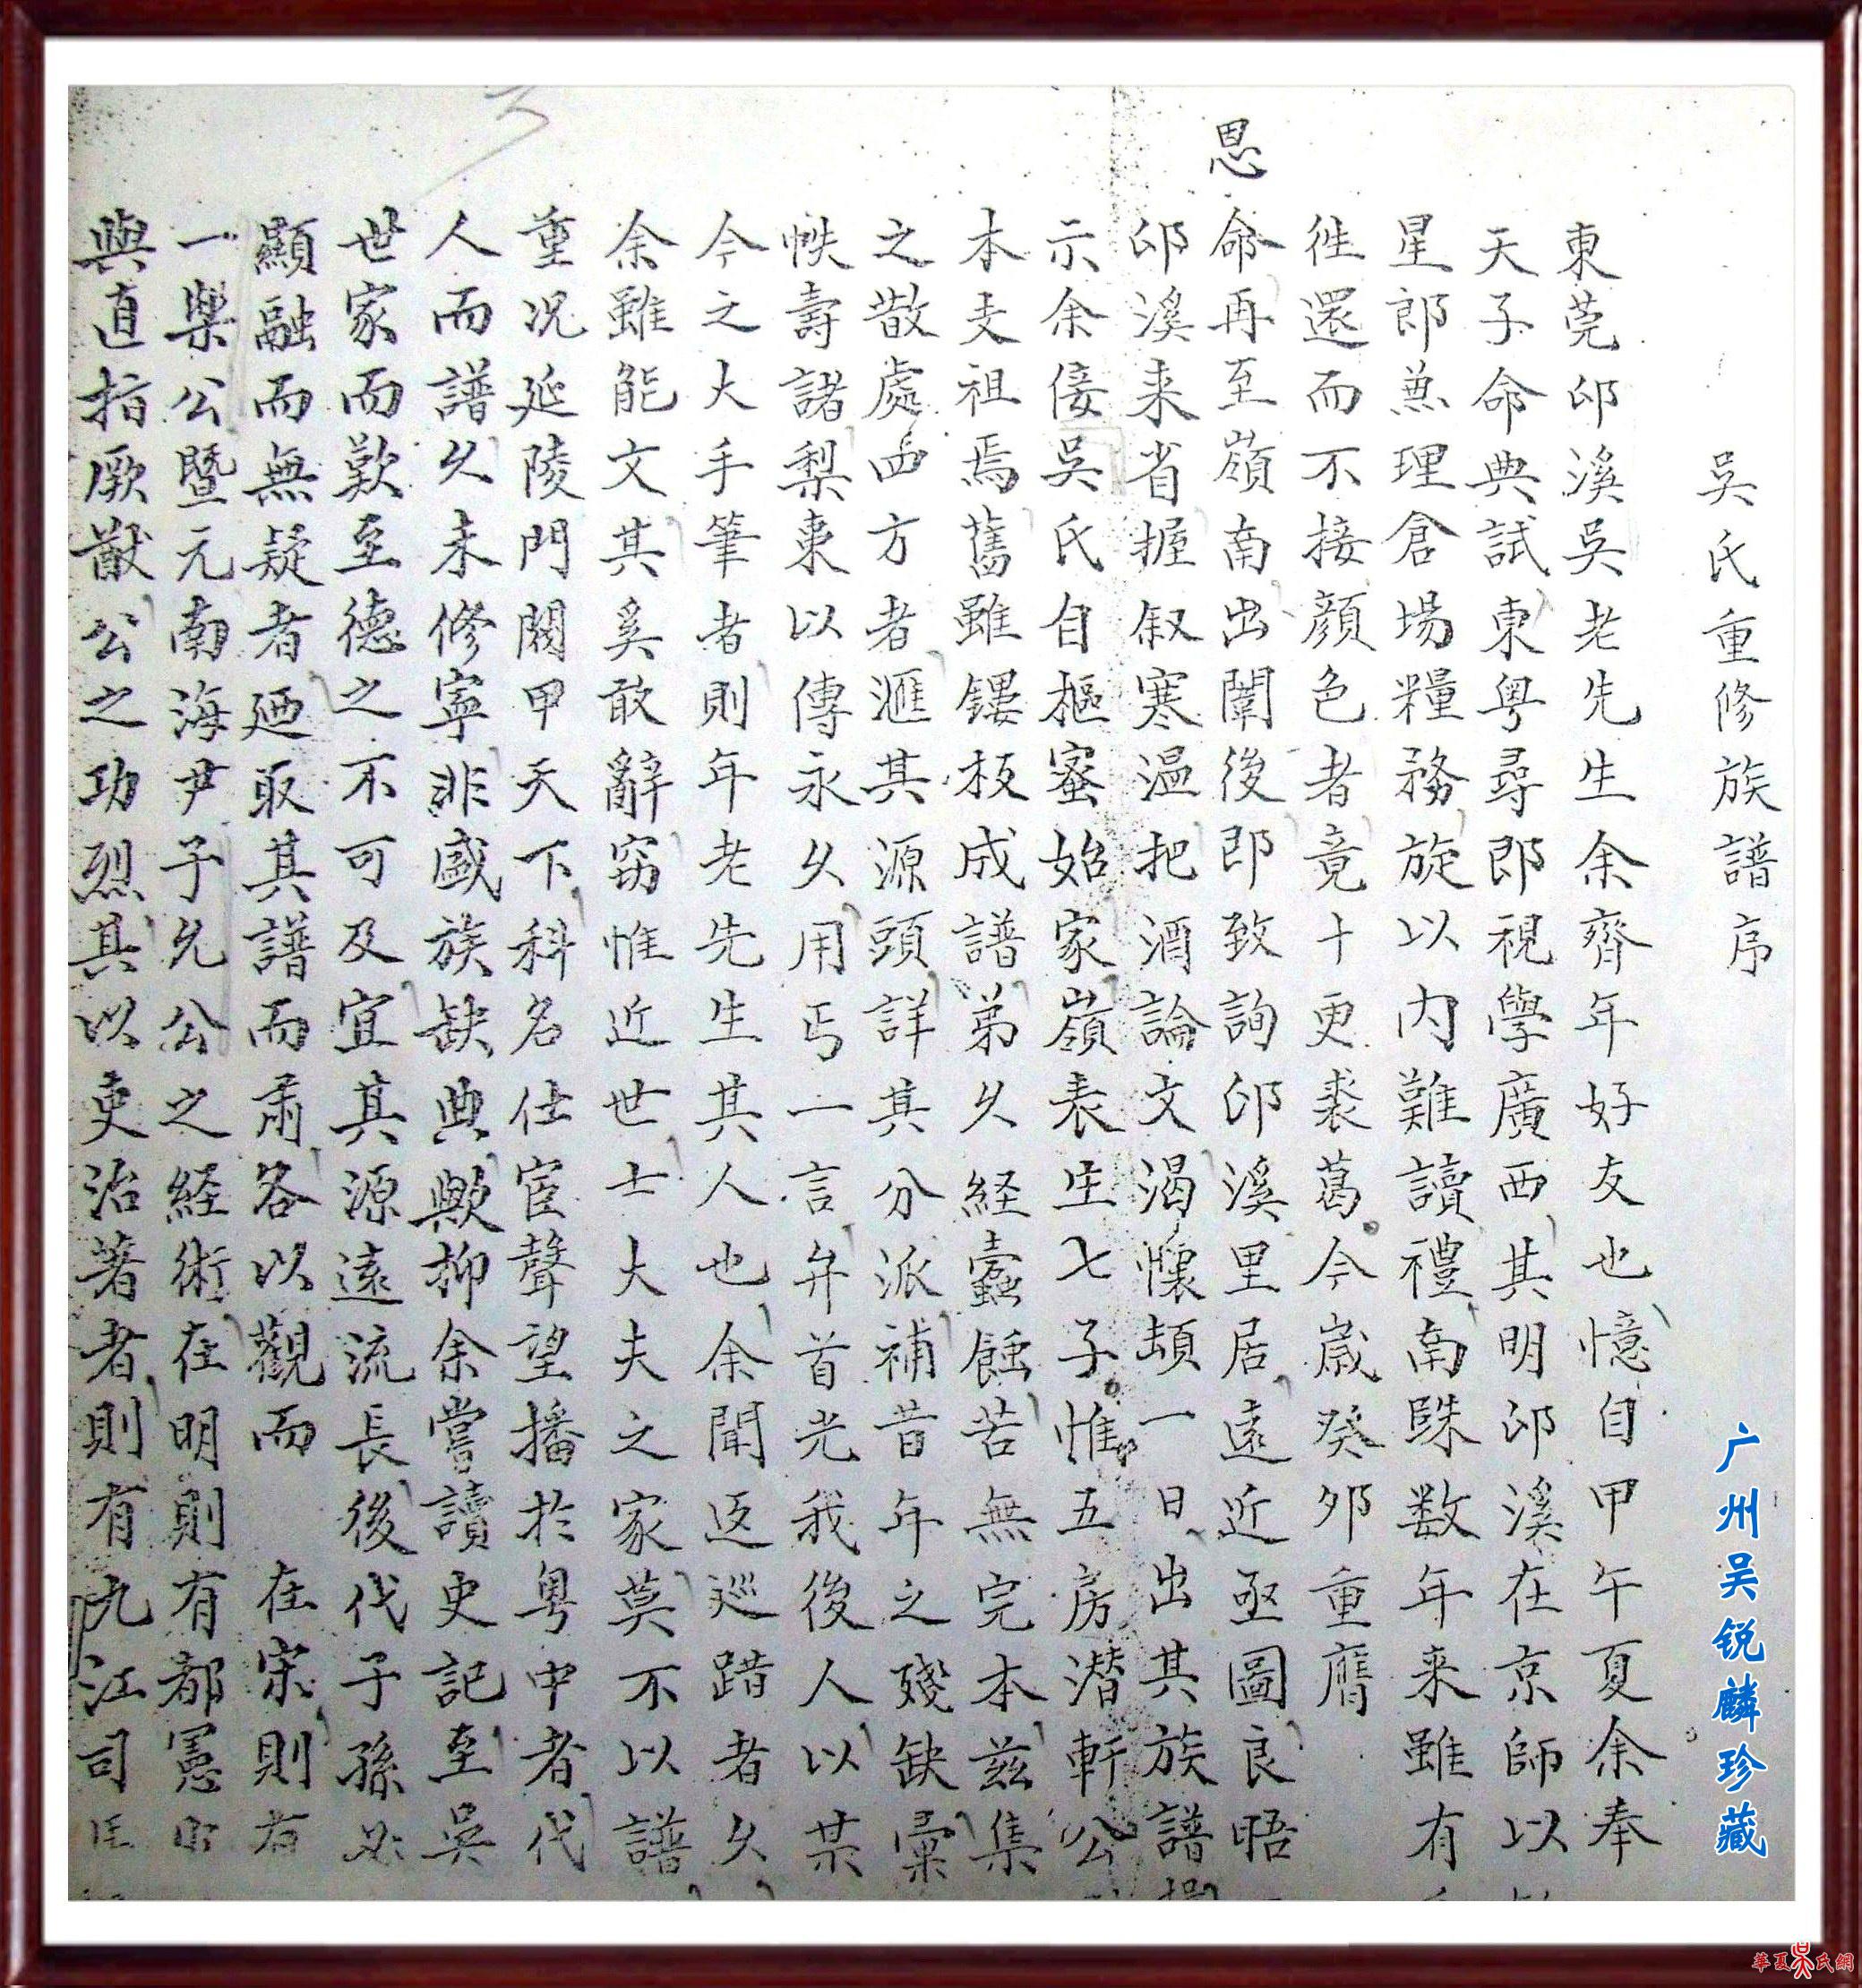 吳氏重修族譜序
東莞邱溪吳老先生余齊年好友也憶自甲午夏余奉
天子命典試東粤尋即視學廣西其明邱溪在京師以
星郎兼理倉場糧務旋以內難讀禮南陔数年来雖有
徃還而不接顏色者竟十更裘葛今嵗癸夘重膺
恩
命再至嶺南出闈後即致詢邱溪里居遠近亟圖良晤
邱溪来省握叙寒溫把酒論文渴懷頓一日出其族譜
示余倭吳氏自樞蜜始家嶺表生七子惟五房潜軒公
本支祖焉舊雖鏤板成譜第乆経蠧蝕苦無完本兹集
之散處四方者滙其源頭詳其分派補昔年之殘缺彙
帙壽諸梨棗以傳永乆用丐一言弁首光我後人以某
今之大手筆者則年老先生其人也余聞逡巡踖者乆
余雖能文其奚敢辭竊惟近世士大夫之家莫不以譜
重况延陵門閥甲天下科名仕宦聲望播扵粤中者代
人而譜乆未修寧非盛族缺典歟抑余嘗讀史記至吳
世家而歎至德之不可及宜其源遠流長後代子孫必
顯融而無疑者廼取其譜而肅容以觀而 在宋則有
一槼公暨元南海尹子允公之経術在明則有都憲
與直指厥猷公之功烈其以吏治著者則有九江司
广州吴锐麟珍藏
華夏吴氏網